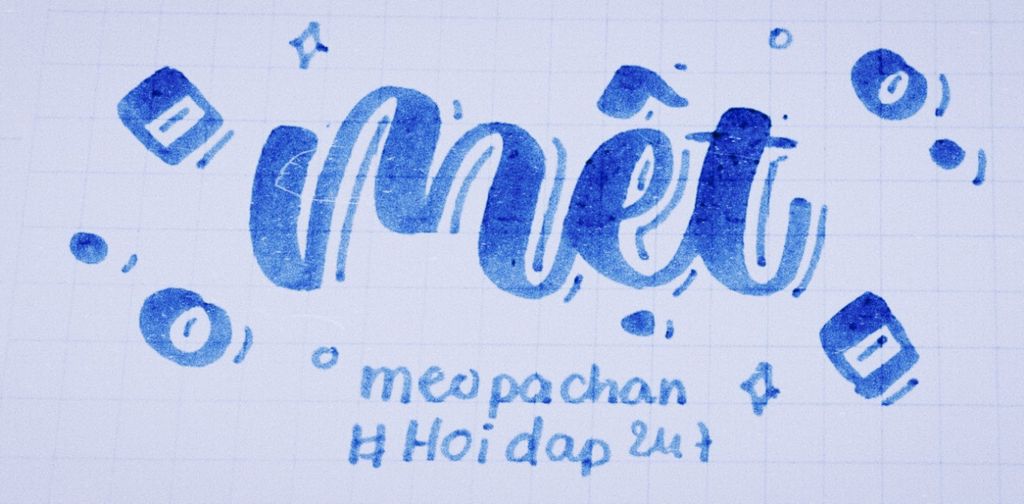 mệt
meopachan
#Hoidap247